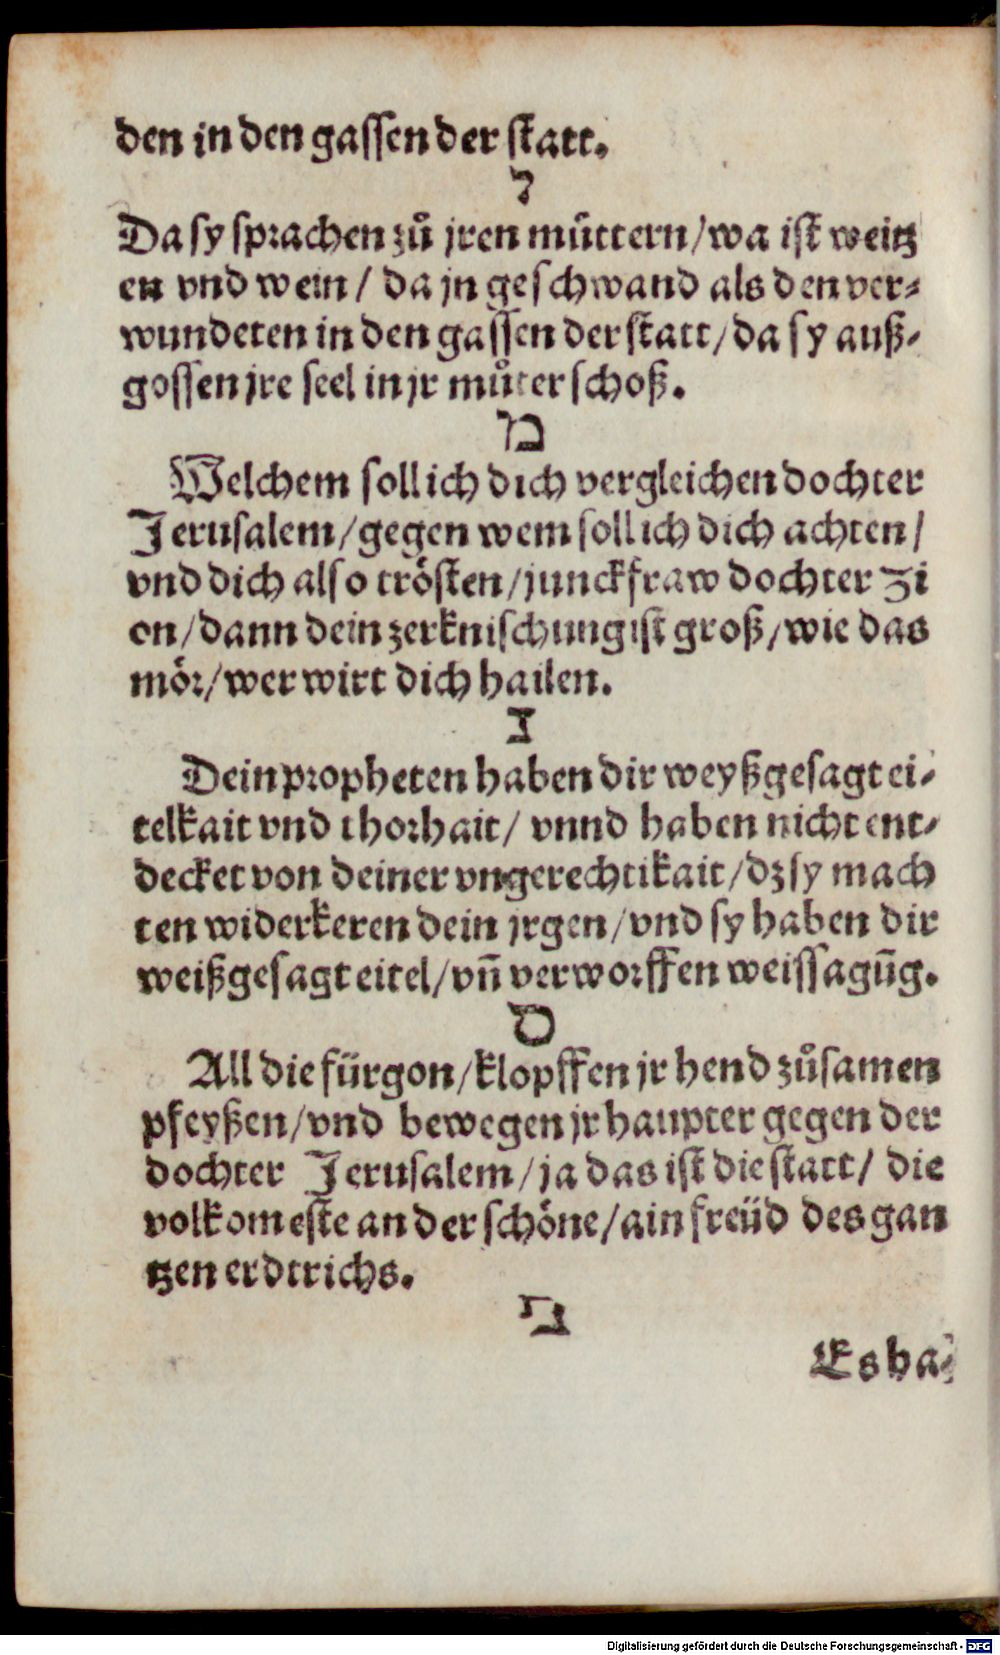 den in den gassen der statt.
ל
Da sy sprachen zů jren müttern/wa ist weitz
en vnd wein/ da jn geschwand als den ver⸗
wundeten in den gassen der statt/da sy auß⸗
gossen jre seel in jr můter schoß.
מ
Welchem soll ich dich vergleichen dochter
Jerusalem/gegen wem soll ich dich achten/
vnd dich also trösten/junckfraw dochter Zi
on/dann dein zerknischung ist groß/wie das
mör/wer wirt dich hailen.
נ
Dein propheten haben dir weyßgesagt ei⸗
telkait vnd thorhait/ vnnd haben nicht ent⸗
decket von deiner vngerechtikait/dz sy mach
ten widerkeren dein jrgen/vnd sy haben dir
weißgesagt eitel/vn̄ verworffen weissagūg.
ס
All die fürgon/klopffen jr hend zůsamen
pfeyßen/vnd bewegen jr haupter gegen der
dochter Jerusalem/ja das ist die statt/ die
volkomeste an der schöne/ain freüd des gan
tzen erdtrichs.
פ
Es ha⸗
Digitalisierung gefördert durch die Deutsche Forschungsgemeinschaft - DFG